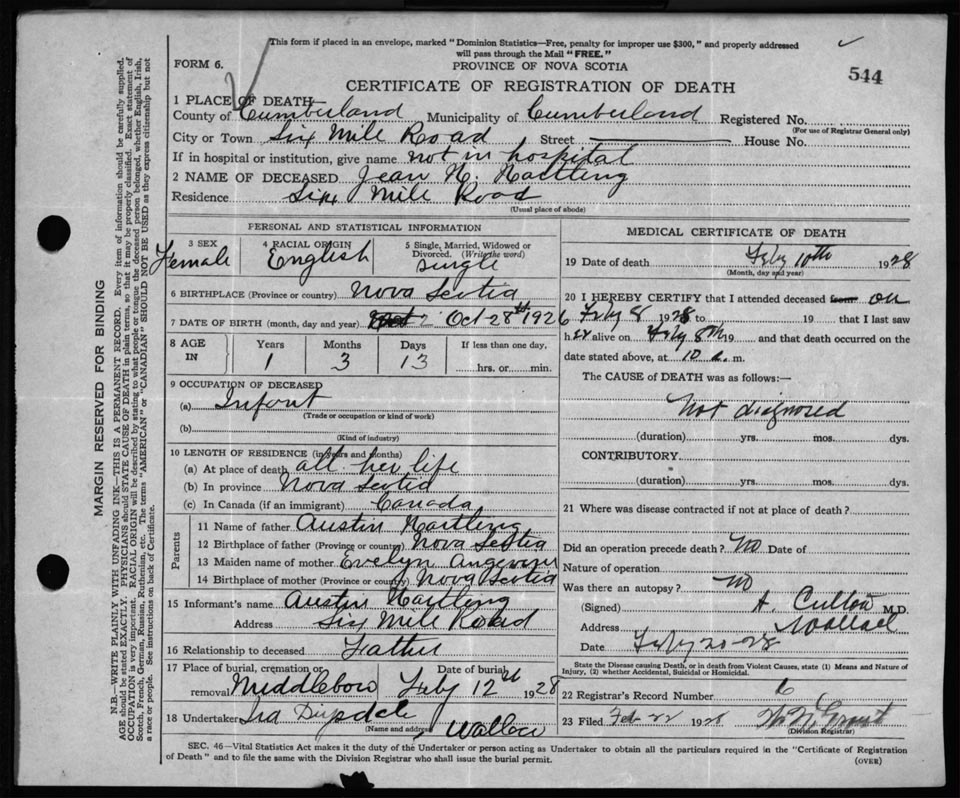 This form if placed in an envelope, marked "Dominion Statistics—Free, penalty for improper use $300," and properly addressed
will pass through the Mail "FREE."
FORM 6.
PROVINCE OF NOVA SCOTIA
544
CERTIFICATE OF REGISTRATION OF DEATH
1 PLACE OF DEATH
County of Cumberland Municipality of Cumberland Registered No.
(For use of Registrar General only)
City or Town Six Mile Road Street House No.
If in hospital or institution, give name not in hospital
2 NAME OF DECEASED Jean N. Nartling
Residence Six Mile Road
(Usual place of abode)
PERSONAL AND STATISTICAL INFORMATION
3 SEX 4 RACIAL ORIGIN 5 Single, Married, Widowed or
Divorced. (Write the word)
Female English single
6 BIRTHPLACE (Province or country) Nova Scotia
7 DATE OF BIRTH (month, day and year) Oct 28th 1926
8 AGE IN Years Months Days If less than one day,
1 3 13 hrs. or min.
9 OCCUPATION OF DECEASED
(a) Infant
(Trade or occupation or kind of work)
(b)
(Kind of industry)
10 LENGTH OF RESIDENCE (in years and months)
(a) At place of death all her life
(b) In province Nova Scotia
(c) In Canada (if an immigrant) Canada
Parents
11 Name of father Austin Nartling
12 Birthplace of father (Province or country) Nova Scotia
13 Maiden name of mother Evelyn Angevine
14 Birthplace of mother (Province or country) Nova Scotia
15 Informant's name Austin Nartling
Address Six Mile Road
16 Relationship to deceased Father
17 Place of burial, cremation or Date of burial
removal Middleboro Feby 12 1928
18 Undertaker Ira Wallace
(Name and address)
MEDICAL CERTIFICATE OF DEATH
19 Date of death Feby 10th 1928
(Month, day and year)
20 I HEREBY CERTIFY that I attended deceased from on
Feby 8 1928 to 19 that I last saw
h er alive on Feby 8th 19 and that death occurred on the
date stated above, at 10 a. m.
The CAUSE of DEATH was as follows:—
Not diagnosed
(duration) yrs. mos. dys.
CONTRIBUTORY
(duration) yrs. mos. dys.
21 Where was disease contracted if not at place of death?
Did an operation precede death? No Date of
Nature of operation
Was there an autopsy? No
(Signed) A. M.D.
Address Wallace
Date Feby 20-28
State the Disease causing Death, or in death from Violent Causes, state (1) Means and Nature of
Injury, (2) whether Accidental, Suicidal or Homicidal.
22 Registrar's Record Number 6
23 Filed Feb 22 1928
(Division Registrar)
SEC. 46—Vital Statistics Act makes it the duty of the Undertaker or person acting as Undertaker to obtain all the particulars required in the "Certificate of Registration
of Death" and to file the same with the Division Registrar who shall issue the burial permit.
(OVER)
MARGIN RESERVED FOR BINDING
N.B.—WRITE PLAINLY WITH UNFADING INK—THIS IS A PERMANENT RECORD. Every item of information should be carefully supplied.
AGE should be stated EXACTLY. PHYSICIANS should STATE CAUSE OF DEATH in plain terms, so that it may be properly classified. Exact statement of
OCCUPATION is very important. RACIAL ORIGIN will be described by stating to what people or tongue the deceased person belonged, whether English, Irish,
Scotch, French, German, Russian, Ruthenian, etc. The terms "AMERICAN" or "CANADIAN" SHOULD NOT BE USED as they express citizenship but not
a race or people. See instructions on back of Certificate.